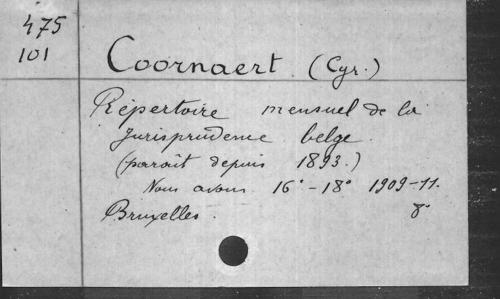 475
101
Coornaert (Cyr.)
Répertoire mensuel de la
Jurisprudence belge.
(paraît depuis 1893.)
Nous avons 16° - 18° 1909-11.
Bruxelles. 8°